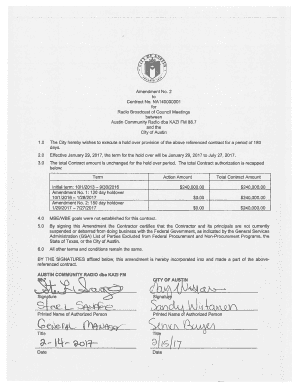 Amendment No. 2
to
Contract No. NA140000001
for
Radio Broadcast of Council Meetings
between
Austin Community Radio dba KAZI FM 88.7
and the
City of Austin
1.0 The City hereby wishes to execute a hold over provision of the above referenced contract for a period of 180 days.
2.0 Effective January 29, 2017, the term for the hold over will be January 29, 2017 to July 27, 2017.
3.0 The total Contract amount is unchanged for the hold over period. The total Contract authorization is recapped below:
Term Action Amount Total Contract Amount
Initial term: 10/1/2013 – 9/30/2016 $240,000.00 $240,000.00
Amendment No. 1: 120 day holdover
10/1/2016 – 1/28/2017 $0.00 $240,000.00
Amendment No. 2: 180 day holdover
1/29/2017 – 7/27/2017 $0.00 $240,000.00
4.0 MBE/WBE goals were not established for this contract.
5.0 By signing this Amendment the Contractor certifies that the Contractor and its principals are not currently
suspended or debarred from doing business with the Federal Government, as indicated by the General Services
Administration (GSA) List of Parties Excluded from Federal Procurement and Non-Procurement Programs, the
State of Texas, or the City of Austin.
6.0 All other terms and conditions remain the same.
BY THE SIGNATURES affixed below, this amendment is hereby incorporated into and made a part of the above-
referenced contract.
AUSTIN COMMUNITY RADIO dba KAZI FM CITY OF AUSTIN
Signature Signature
Sandy Wirtanen
Printed Name of Authorized Person Printed Name of Authorized Person
General Manager Senior Buyer
Title Title
2-14-2017 2/15/17
Date Date